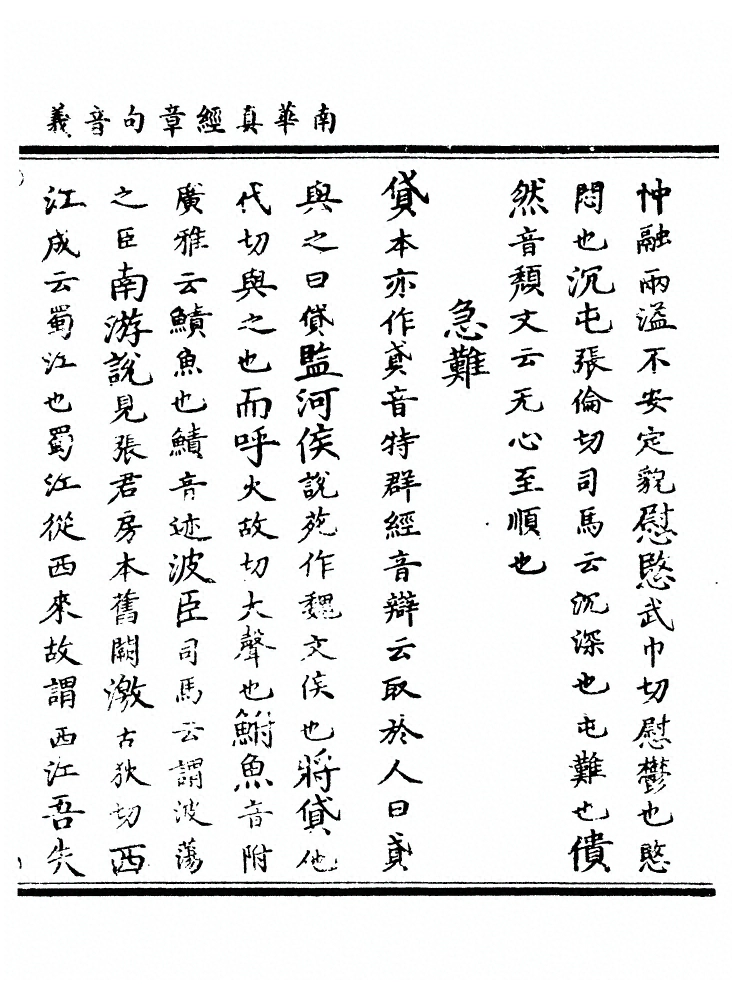 南華真經章句音義
忡融兩溢不安定貌慰暋武巾切慰鬱也暋
悶也沉屯張倫切司馬云沉深也屯難也僓
然音頹文云无心至順也
急難
貸本亦作貣音特群經音辯云取於人曰貣
與之曰貸監河侯說苑作魏文侯也將貸他
代切與之也而呼火故切大聲也鮒魚音附
廣雅云鰿魚也鰿音迹波臣司馬云謂波蕩
之臣南游說見張君房本舊闕激古狄切西
江成云蜀江也蜀江從西來故謂西江吾失